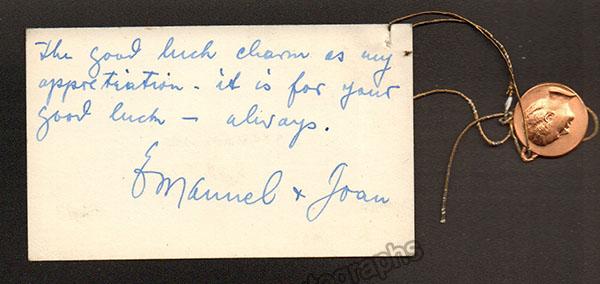 The good luck charm as my
appretiation - it is for your
good luck - always.
Emanuel + Joan
autographs